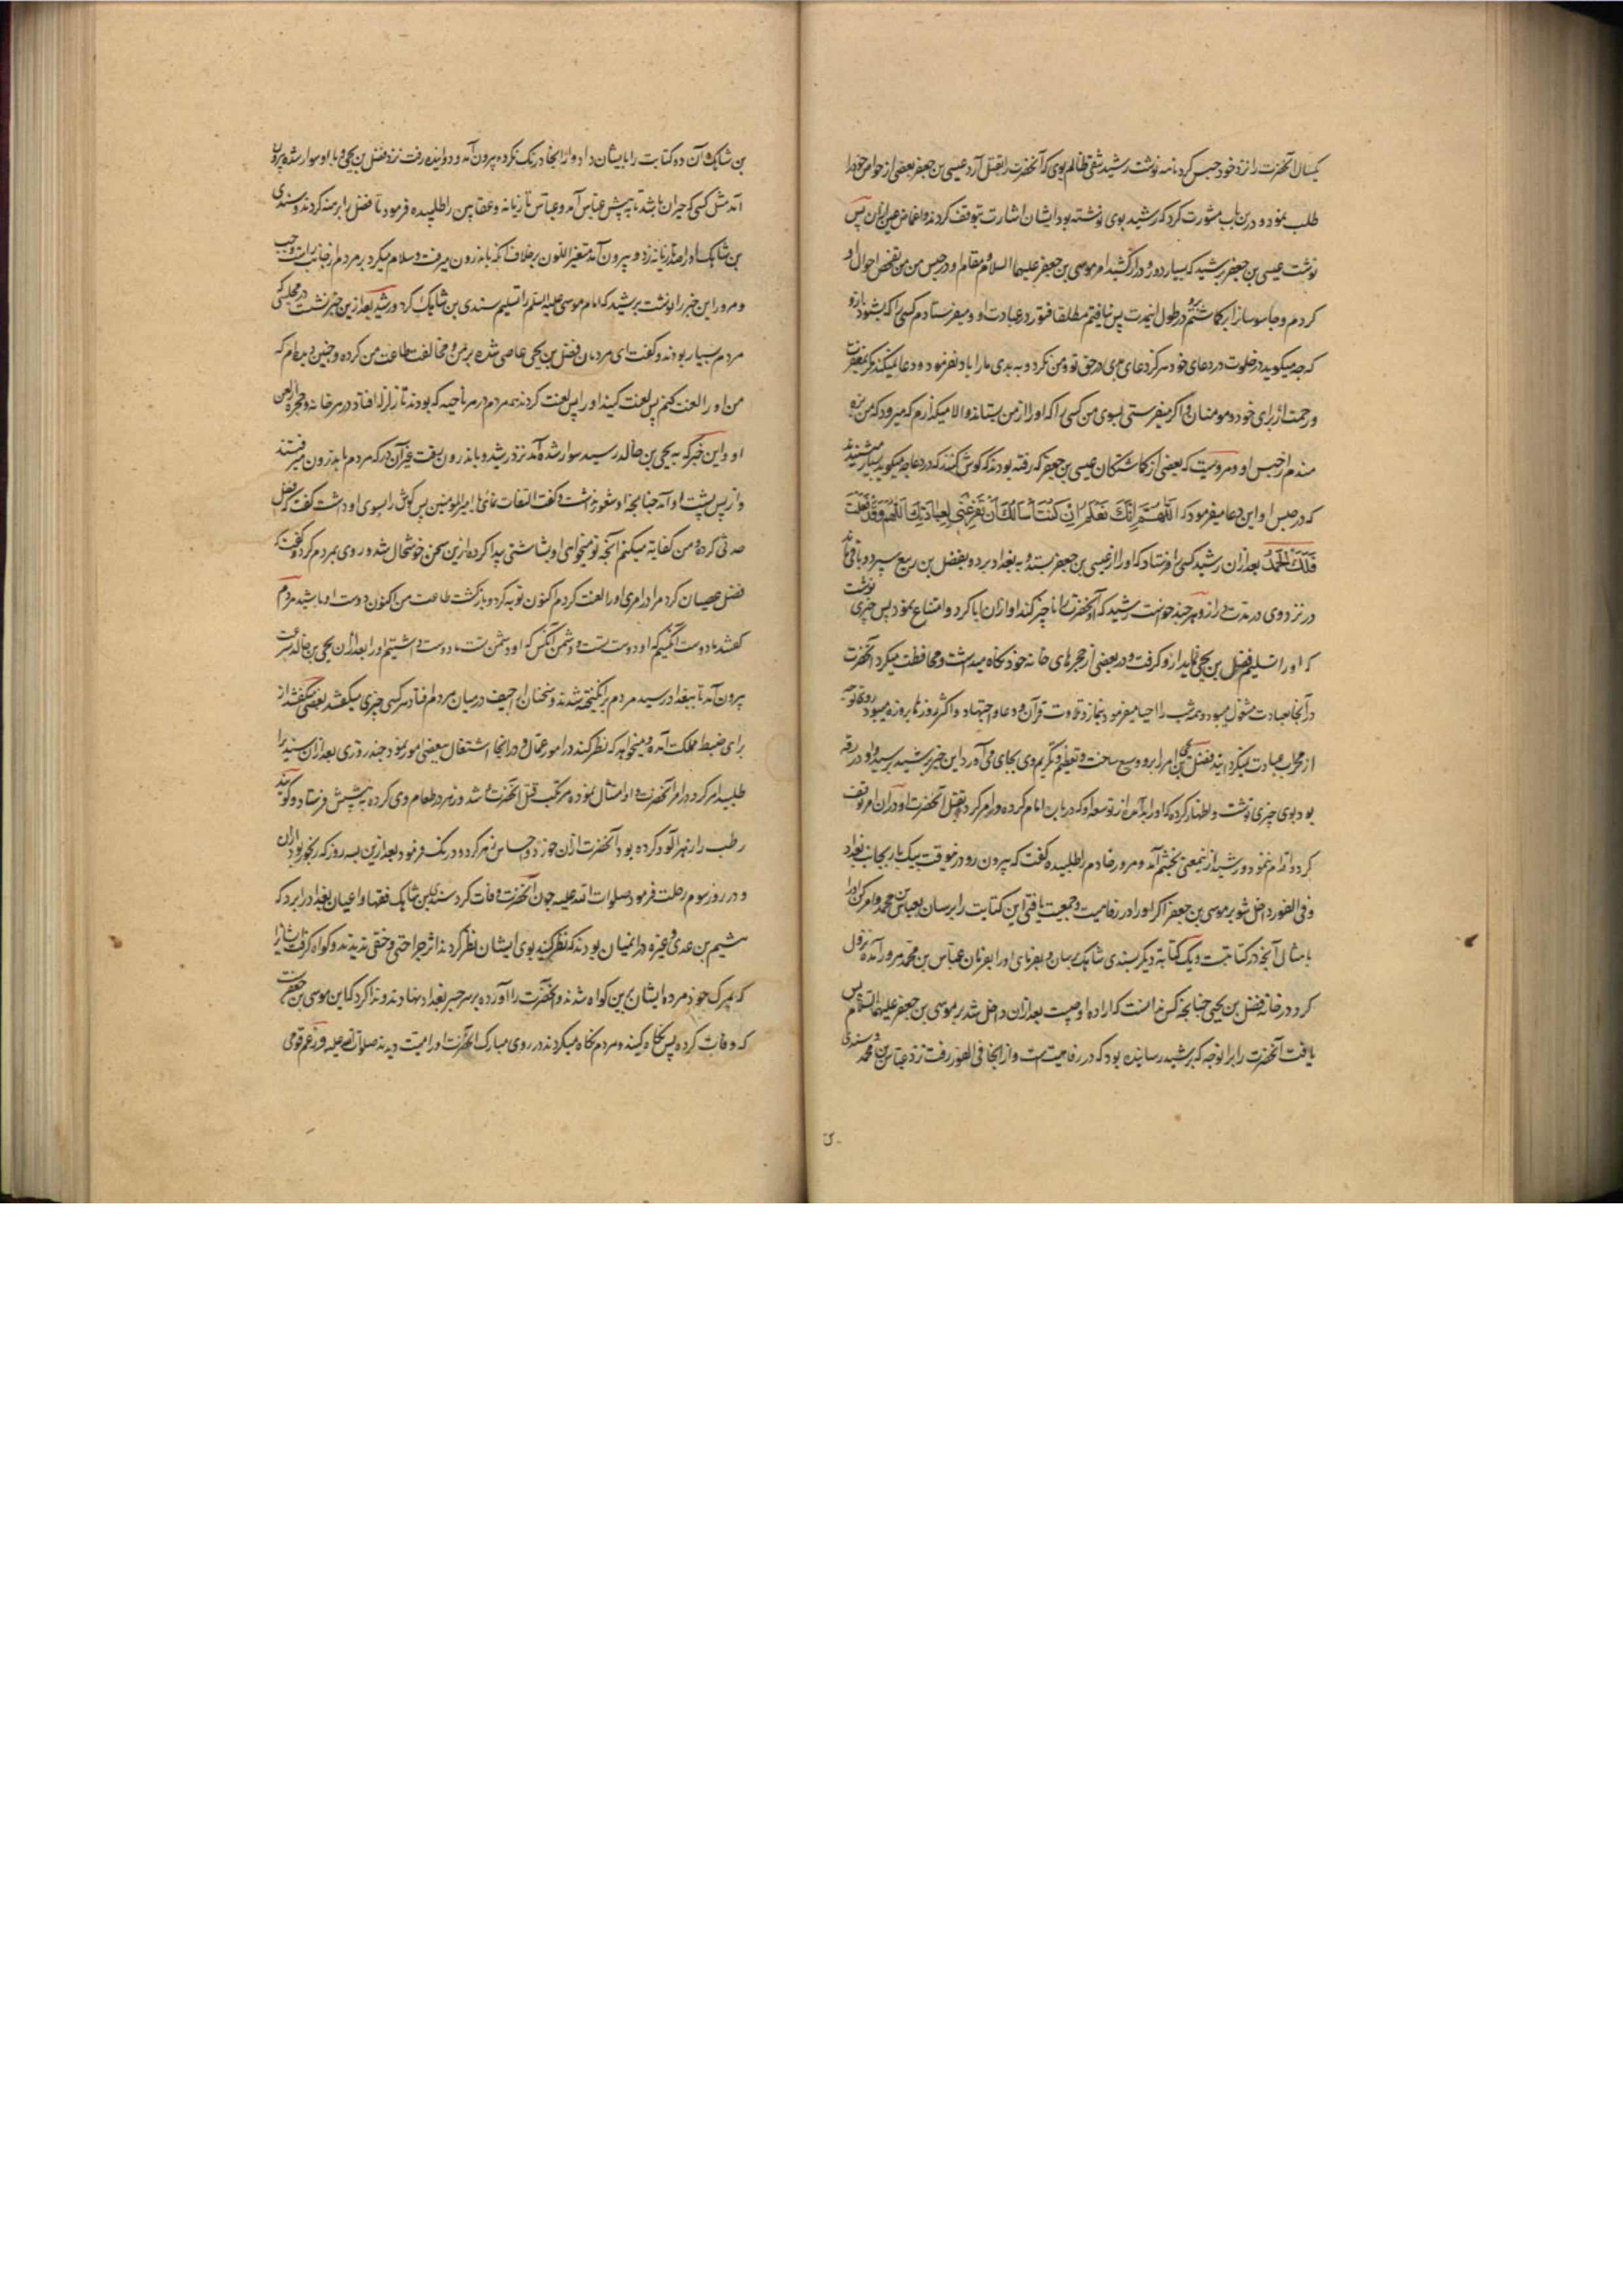 یکسال آنحضرت را نزد خود حبس کرد نامه نوشت رشید شقی ظالم بوی که آنحضرت را بقتل آرد عیسی بن جعفر بعضی از خواص خود را
طلب نمود و درین باب مشورت کرد که رشید بوی نوشته بود ایشان اشارت بتوقف کردند و اغماض عین ازان پس
نوشت عیسی بن جعفر برشید که بسیار دور و دراز کشید امر موسی بن جعفر علیهما السلام و مقام او در حبس من من تفحص احوال او
کردم و جاسوسان را برو کماشتم در طول این مدت پس نیافتم مطلقا فتور در عبادت او و میفرستادم کسی را که بشنود ازو
که چه میکوید در خلوت در دعای خود هرکز دعای بدی در حق تو و من نکرد و به بدی ما را یاد نفرمود و دعا نمیکند مکر بمغفرت
و رحمت از برای خود و مومنان و اکر میفرستی بسوی من کسی را که او را از من بستاند و الا میکذارم که میرود که من
مندم از حبس او و مرویست که بعضی از کماشتکان عیسی بن جعفر که رفته بودند که کوش کنند که در دعا چه میکوید بسیار میشنیدند
که در حبس او این دعا میفرمود که اللهم انک تعلم انی کنت اسالک ان تفرغنی لعبادتک اللهم و قد فعلت
فلک الحمد بعد ازان رشید کسی را فرستاد که او را از عیسی بن جعفر بستد و به بغداد برد و بفضل بن ربیع سپرد و باقی ماند
در نزد وی در مدت دراز و هر چند خواست رشید که آنحضرت را ناچیز کند او ازان ابا کرد و امتناع نمود پس چیزی نوشت
که او را تسلیم فضل بن یحیی نماید ازو کرفت و در بعضی از حجرهای خانه خود نکاه میداشت و محافظت میکرد آنحضرت
در آنجا بعبادت مشغول میبود و همه شب را احیا میفرمود بنماز و تلاوت قرآن و دعا و اجتهاد و اکثر روزها بروزه میبود و روی توجه
از محراب عبادت نمیکردانید فضل بن یحیی امر را برو وسیع ساخت و تعظیم و تکریم وی بجای می آورد این خبر برشید رسید و او در رقه
بود بوی چیزی نوشت و اظهار کرده که او را بد آمده از توسعه او که در باره امام کرده و امر کرد بقتل آنحضرت او دران امر توقف
کرد و اقدام ننمود و رشید ازین معنی بخشم آمد و مسرور خادم را طلبیده کفت که بیرون رو درین وقت بیک بار بجانب بغداد
و فی الفور داخل شو بر موسی بن جعفر اکر او را در رفاهیت و جمعیت یافتی این کتابت را برسان بعباس بن محمد و امر کن او را
بامثال آنچه در کتابتست و یک کتابه دیکر بسندی شاهک رسان و بفرمای او را بفرمان عباس بن محمد مسرور آمده نزول
کرد در خانه فضل بن یحیی چنانچه کس ندانست که اراده او چیست بعد ازان داخل شد بر موسی بن جعفر علیهما السلام پس
یافت آنحضرت را بران وجه که برشید رسانیده بود که در رفاهیتست و از آنجا فی الفور رفت نزد عباس بن محمد و سندی
بن شاهک و آن دو کتابت را بایشان داد و از آنجا درنک نکرده بیرون آمد و دوانیده رفت نزد فضل بن یحیی و با او سوار شده بیرون
آمد مثل کسی که حیران باشد تا به پیش عباس آمد و عباس تازیانه و عقابین را طلبیده فرمود تا فضل را برهنه کردند و سندی
بن شاهک او را صد تازیانه زد و بیرون آمد متغیر اللون بر خلاف آنکه باندرون میرفت و سلام میکرد بر مردم از جانب راست و چپ
و مسرور این خبر را نوشت برشید که امام موسی علیه السلم را تسلیم سندی بن شاهک کرد و رشید بعد ازین خبر نشست در مجلسی که
مردم بسیار بودند و کفت ای مردمان فضل بن یحیی عاصی شده بر من و مخالفت طاعت من کرده و چنین دیده ام که
من او را لعنت کنم پس لعنت کنید او را پس لعنت کردند همه مردم در هر ناحیه که بودند تا زلزله افتاد در هر خانه و حجره از لعن
او و این خبر که به یحیی بن خالد رسید سوار شده آمد نزد رشید و باندرون رفت غیر آن در که مردم باندرون میرفتند
و از پس پشت او آمد چنانچه او شعور نداشت و کفت التفات نمای یا امیر المومنین پس کوش را بسوی او داشت کفت که فضل
حدثی کرده و من کفایه میکنم آنچه تو میخواهی او بشاشتی پیدا کرده ازین سخن خوشحال شد و روی بمردم کرد و کفت که
فضل عصیان کرد مرا در امری او را لعنت کردم اکنون توبه کرد و بازکشت بطاعت من اکنون دوست او باشید مردم
کفتند ما دوست آنکسیم که او دوست تست و دشمن آنکس که او دشمن تست ما دوست داشتیم او را بعد ازان یحیی بن خالد بسرعت
بیرون آمد تا ببغداد رسید مردم برانکیخته شدند و سخنان اراجیف در میان مردم افتاد هر کسی چیزی میکفتند بعضی میکفتند از
برای ضبط مملکت آمده و میخواهد که نظر کنند در امور عمال و در آنجا اشتغال ببعضی امور نمود چند روزی بعد ازان سندی را
طلبید امر کرد در امر آنحضرت و او امتثال نموده مرتکب قتل آنحضرت شد و زهر در طعام وی کرده به پیشش فرستاد و کویند
رطب را زهرآلود کرده بود آنحضرت ازان خورد و احساس زهر کرد و درنک فرمود بعد ازین سه روز که رنجور بود ازان
و در روز سوم رحلت فرمود صلوات الله علیه چون آنحضرت وفات کرد سندی بن شاهک فقها و اعیان بغداد را برد که
هشیم بن عدی و غیره در آنمیان بودند که نظر کنید بوی ایشان نظر کردند اثر جراحتی و خنقی ندیدند و کواه کرفت ایشان را
که بمرک خود مرده ایشان برین کواه شدند و آنحضرت را آورده بر سر جسر بغداد نهادند و ندا کرد که این موسی بن جعفرست
که وفات کرده پس نکاه کنید و مردم نکاه میکردند در روی مبارک آنحضرت او را میت دیدند صلوات الله علیه و زعم قومی